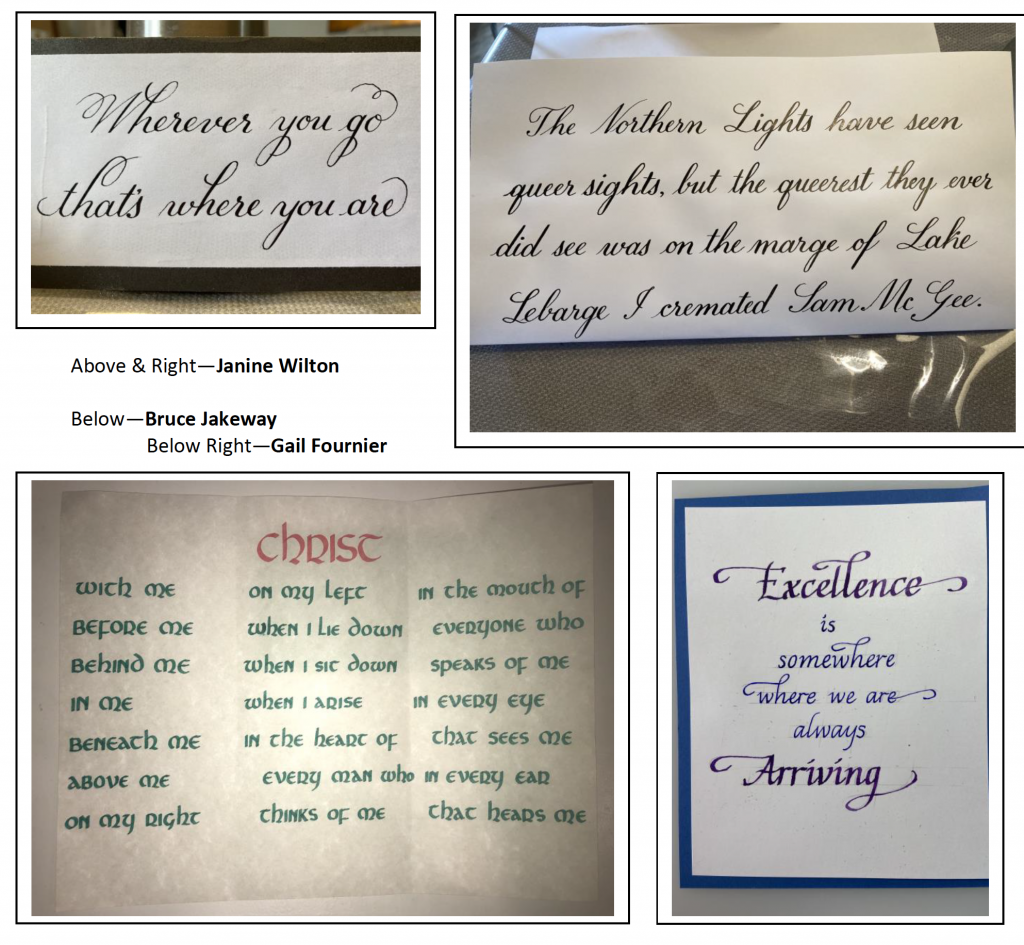 Wherever you go
that's where you are
The Northern Lights have seen
queer sights, but the queerest they ever
did see was on the marge of Lake
Lebarge I cremated Sam Mc Gee.
Above & Right—Janine Wilton
Below—Bruce Jakeway
Below Right—Gail Fournier
Christ
with me
before me
behind me
in me
beneath me
above me
on my right
on my left
when I lie down
when I sit down
when I arise
in the heart of
every man who
thinks of me
in the mouth of
everyone who
speaks of me
in every eye
that sees me
in every ear
that hears me
Excellence
is
somewhere
where we are
always
Arriving